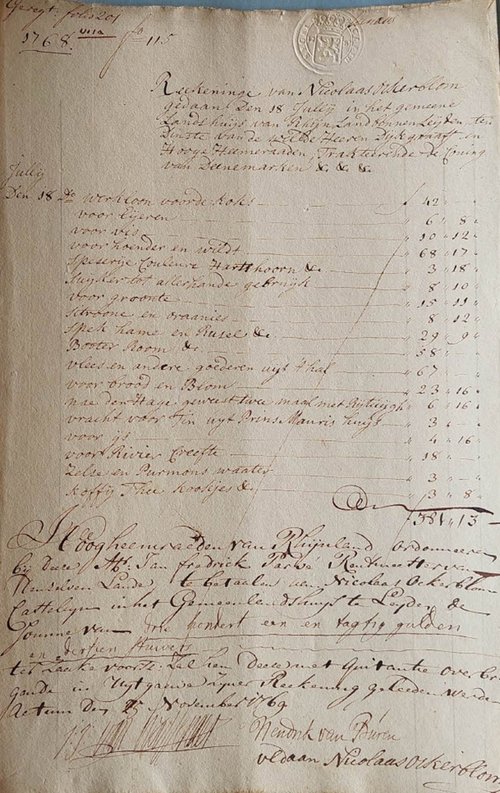 folio 201
1768. f 115
Reekeninge van Nicolaas Ockerblom
gedaan Den 18 Jullij in het gemeene
Landshuijs van Rhijn Land binnen Leijden ten
Dinste van de wel Ed: Heeren Dijkgraaff en
Hooge Heemeraaden, Trakteerende de Coning
van Deenemarken & & &
Jullij
Den 18 Do werkloon voor de Koks f 42 "
voor Eijeren " 6 " 8 "
voor vis " 10 " 12 "
voor hoender en wildt " 68 " 17 "
Speserije Couleure Hartshoorn &c. " 3 " 18 "
Suijker tot allerhande gebruijk " 8 " 10 "
voor groente " 15 " 11 "
Citroone en oraanies " 8 " 12 "
Spek hame en Rusel &c. " 29 " 9 "
Booter Room &c. " 38 "
vlees en andere goederen uijt d'hal " 67 "
voor brood en Blom " 23 " 16 "
nae den Haag geweest twee maal met Rijtuijgh " 6 " 16 "
vracht voor Tin uijt Prins Mauris huijs " 3 "
voor ijs " 4 " 16 "
voor Rivier Creefte " 18 "
Zelse en Purmons waater " 3 "
Koffij Thee kookjes &c " 3 " 8
f 381 " 13 "
Hoogheemraden van Rhijnland ordonneeren
bij deese Mr. Jan Fredrick Rentmeester van
den selven Lande te betaalen aan Nicolaas Ockerblom
Castelijn in het Gemeenlandshuijs te Leijden de
Somme van drie hondert een en tagtig gulden
en dertien stuivers
ter saake voorsz. Zal hem deese met quitantie overbre-
gende in Uijtgaave zijner Reekening geleeden werden
Actum den November 1769
Hendrik van Buren
voldaan Nicolaas Ockerblom